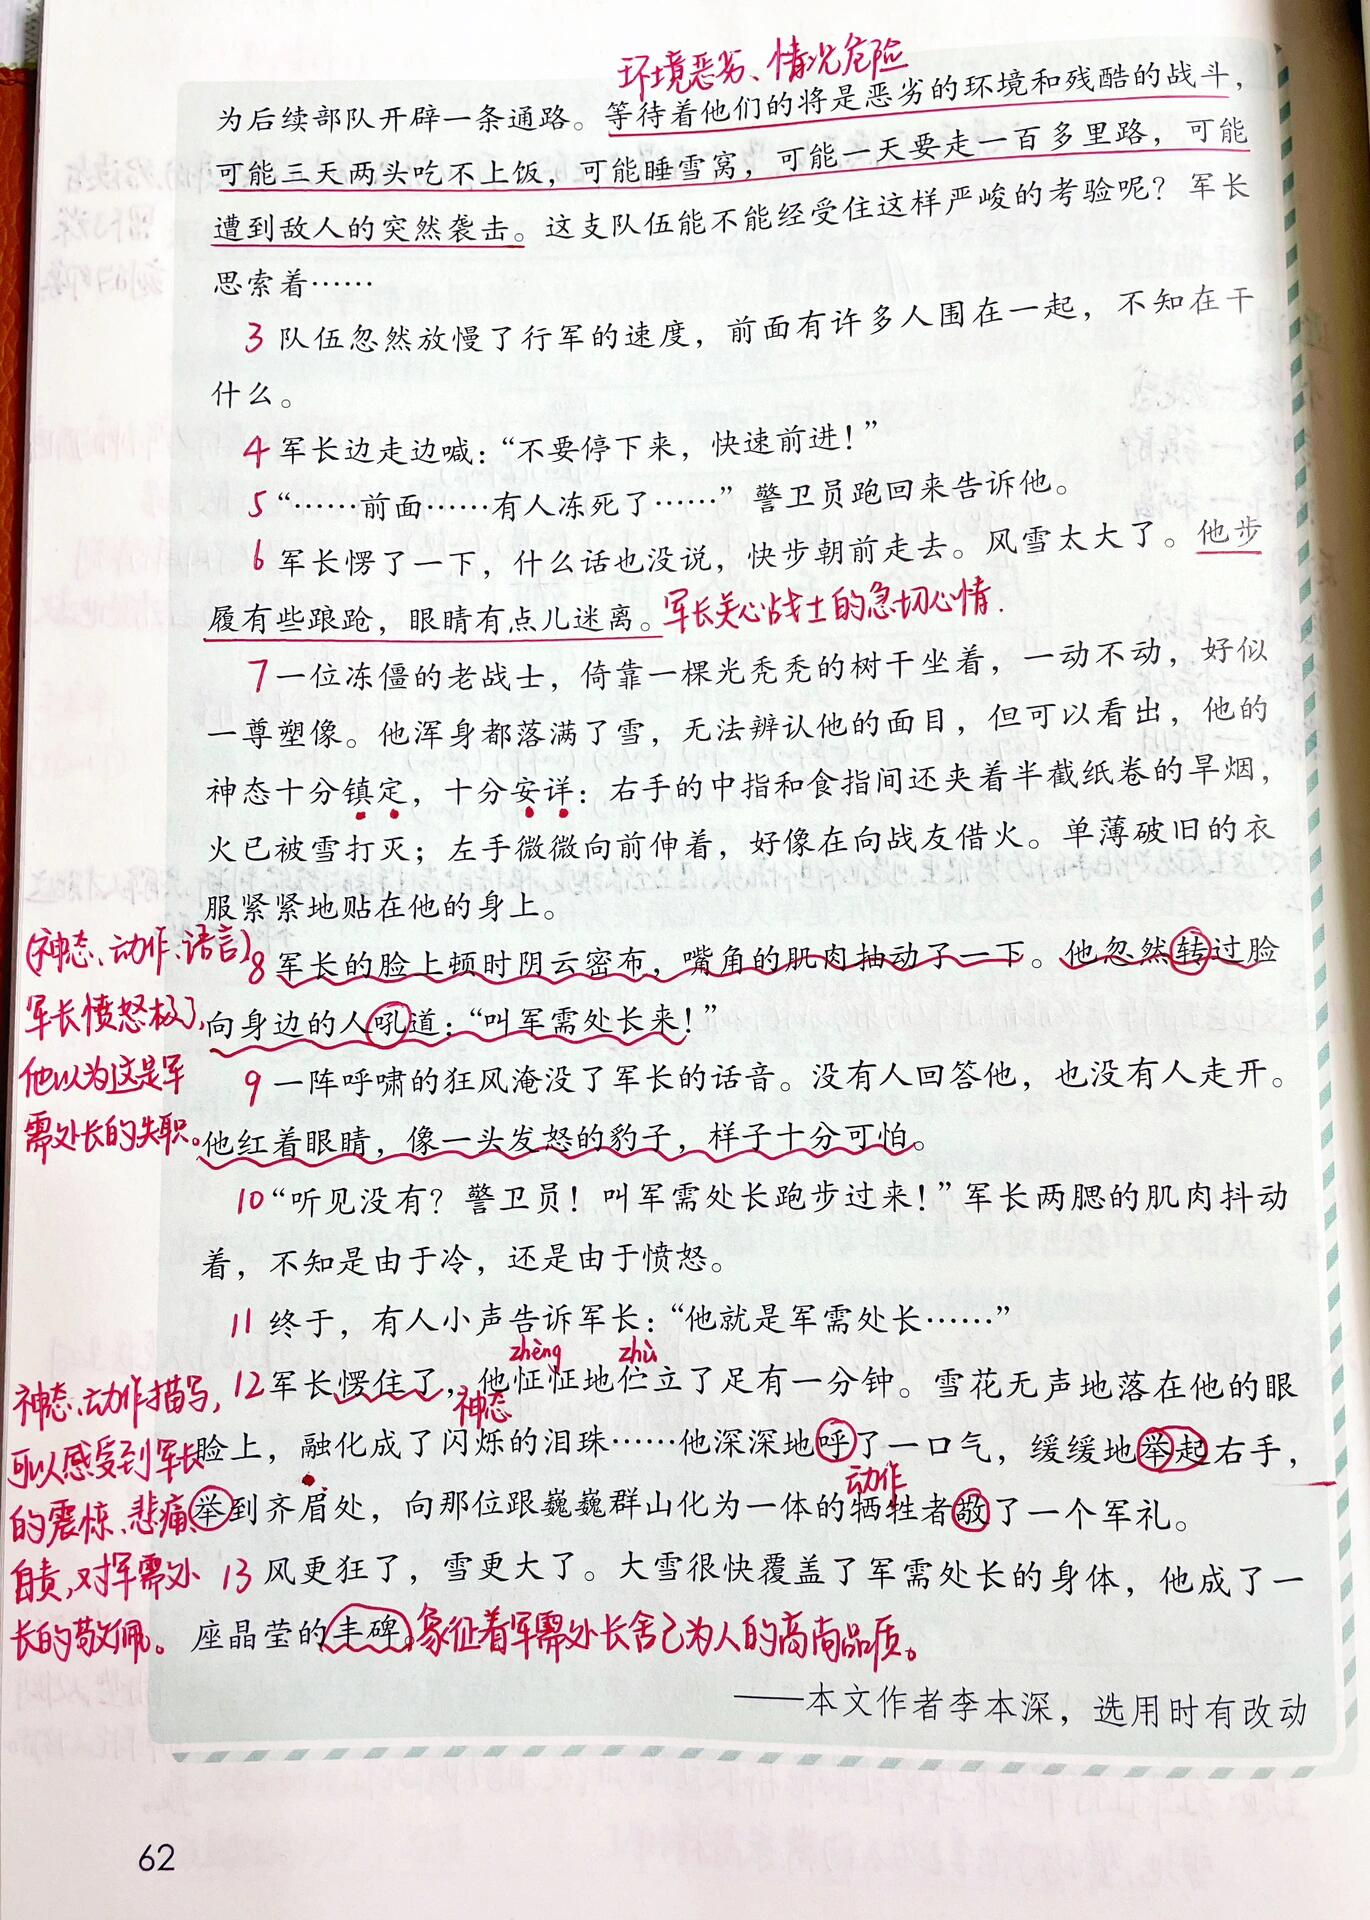 环境恶劣、情况危险
为后续部队开辟一条通路。等待着他们的将是恶劣的环境和残酷的战斗，
可能三天两头吃不上饭，可能睡雪窝，可能一天要走一百多里路，可能
遭到敌人的突然袭击。这支队伍能不能经受住这样严峻的考验呢？军长
思索着……
3 队伍忽然放慢了行军的速度，前面有许多人围在一起，不知在干
什么。
4 军长边走边喊：“不要停下来，快速前进！”
5 “……前面……有人冻死了……”警卫员跑回来告诉他。
6 军长愣了一下，什么话也没说，快步朝前走去。风雪太大了。他步
履有些踉跄，眼睛有点儿迷离。军长关心战士的急切心情.
7 一位冻僵的老战士，倚靠一棵光秃秃的树干坐着，一动不动，好似
一尊塑像。他浑身都落满了雪，无法辨认他的面目，但可以看出，他的
神态十分镇定，十分安详：右手的中指和食指间还夹着半截纸卷的旱烟，
火已被雪打灭；左手微微向前伸着，好像在向战友借火。单薄破旧的衣
服紧紧地贴在他的身上。
(神态、动作、语言)
军长愤怒极了，
他以为这是军
需处长的失职。
8 军长的脸上顿时阴云密布，嘴角的肌肉抽动了一下。他忽然转过脸
向身边的人吼道：“叫军需处长来！”
9 一阵呼啸的狂风淹没了军长的话音。没有人回答他，也没有人走开。
他红着眼睛，像一头发怒的豹子，样子十分可怕。
10 “听见没有？警卫员！叫军需处长跑步过来！”军长两腮的肌肉抖动
着，不知是由于冷，还是由于愤怒。
11 终于，有人小声告诉军长：“他就是军需处长……”
zhēng zhù
12 军长愣住了，他怔怔地伫立了足有一分钟。雪花无声地落在他的眼
神态
脸上，融化成了闪烁的泪珠……他深深地呼了一口气，缓缓地举起右手，
动作
举到齐眉处，向那位跟巍巍群山化为一体的牺牲者敬了一个军礼。
神态、动作描写，
可以感受到军长
的震惊、悲痛、
自责，对军需处
长的敬佩。
13 风更狂了，雪更大了。大雪很快覆盖了军需处长的身体，他成了一
座晶莹的丰碑。象征着军需处长舍己为人的高尚品质。
——本文作者李本深，选用时有改动
62